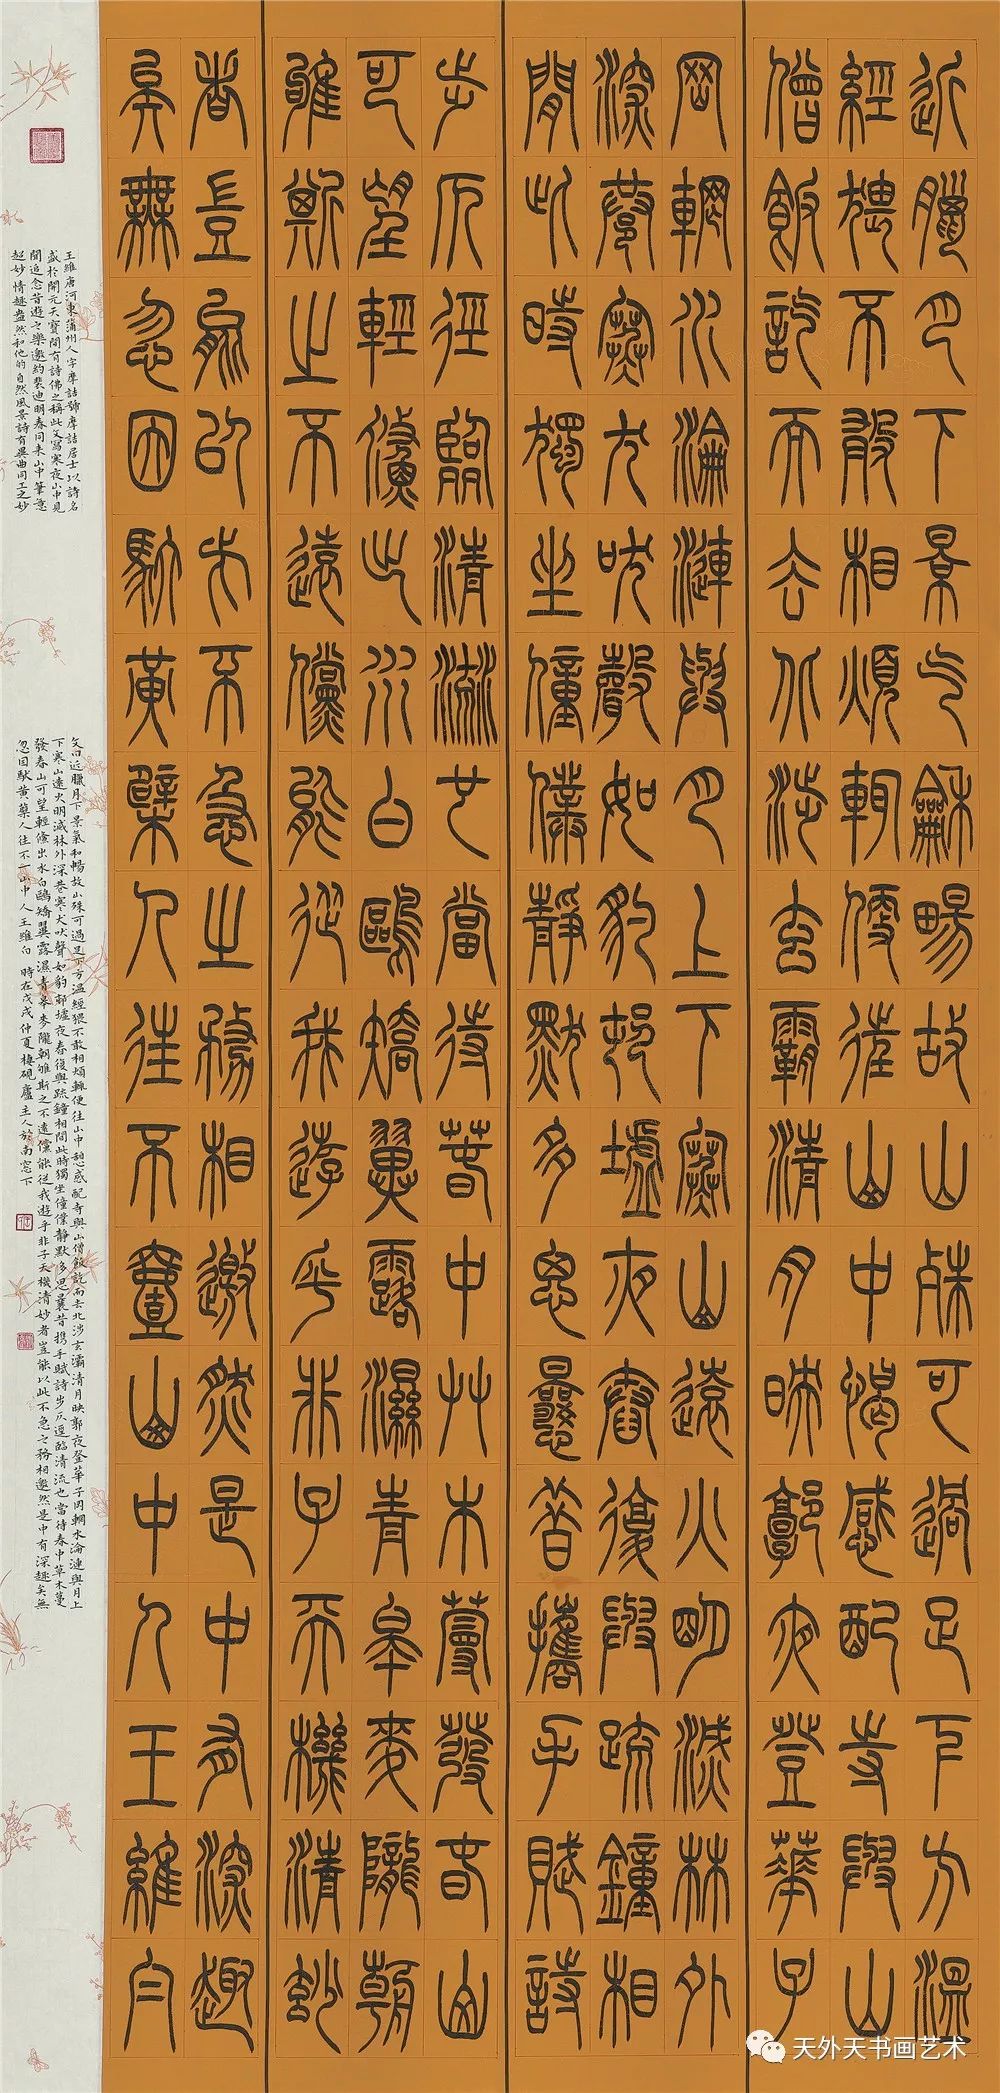 近臘月下景气龢暢故山殊可過足下方溫
經猥不敢相煩輒便往山中憩感配寺與山
僧飯訖而去北涉玄灞清月映郭夜登華子
岡輞水淪漣與月上下寒山遠火明滅林外
深巷寒犬吠聲如豹邨墟夜舂復與疏鐘相
間此時獨坐僮僕靜默多思曩昔攜手賦詩
步仄徑臨清流也當待春中艸木蔓發春山
可望輕鯈出水白鷗矯翼露濕青皋麥隴朝
雊斯之不遠儻能從我遊乎非子天機清妙
者豈能以此不急之務相邀然是中有深趣
矣無忽因馱黃檗人往不壹山中人王維白
王維唐河東蒲州人字摩詰號摩詰居士以詩名
盛於開元天寶間有詩佛之稱此文寫寒夜山中見
聞追念昔遊之樂邀約裴迪明春同来山中筆意
超妙情趣盎然和他的自然風景詩有異曲同工之妙
文曰近臘月下景氣和暢故山殊可過足下方溫經猥不敢相煩輒便往山中憩感配寺與山僧飯訖而去北涉玄灞清月映郭夜登華子岡輞水淪漣與月上
下寒山遠火明滅林外深巷寒犬吠聲如豹邨墟夜舂復與疏鐘相間此時獨坐僮僕靜默多思曩昔携手賦詩步仄逕臨清流也當待春中草木蔓
發春山可望輕鯈出水白鷗矯翼露濕青皋麥隴朝雊斯之不遠儻能從我遊乎非子天機清妙者豈能以此不急之務相邀然是中有深趣矣無
忽因馱黃蘗人往不一山中人王維白 時在戊戌仲夏棲硯廬主人於南窓下
天外天书画艺术